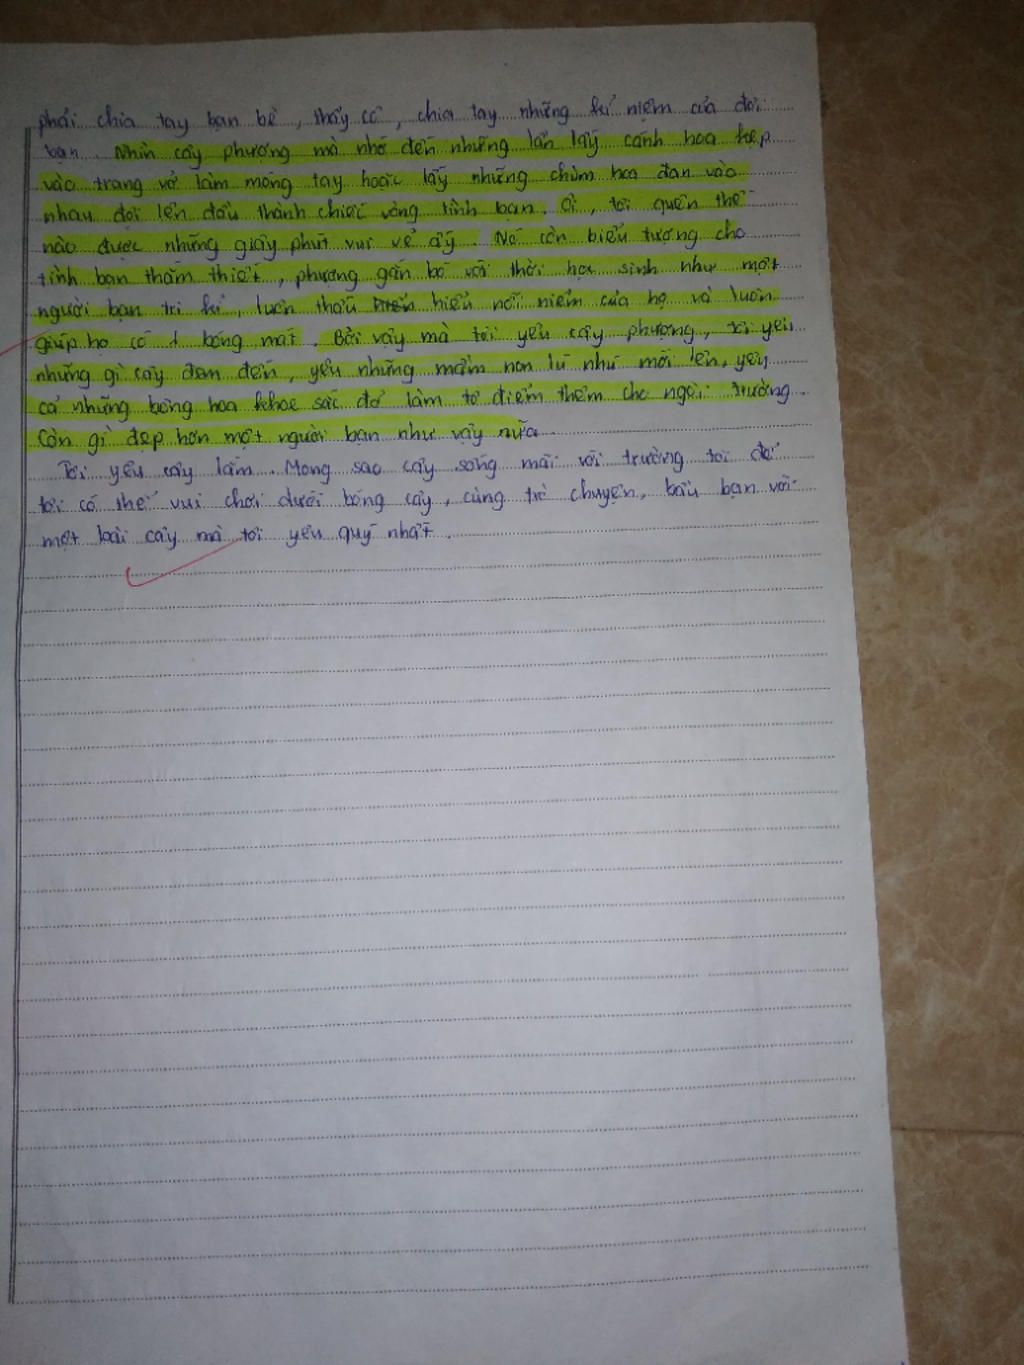 phải chia tay bạn bè, thầy cô, chia tay những kỉ niệm của đời
bạn. Nhìn cây phượng mà nhớ đến những lần lấy cánh hoa kẹp
vào trang vở làm móng tay hoặc lấy những chùm hoa đan vào
nhau đội lên đầu thành chiếc vòng tình bạn. Ôi, tôi quên thế
nào được những giây phút vui vẻ ấy. Nó còn biểu tượng cho
tình bạn thắm thiết, phượng gắn bó với thời học sinh như một
người bạn tri kỉ, luôn thấu hiểu nỗi niềm của họ và luôn
giúp họ có 1 bóng mát. Bởi vậy mà tôi yêu cây phượng, tôi yêu
những gì cây đem đến, yêu những mầm non lú nhú mới lên, yêu
cả những bông hoa khoe sắc đỏ làm tô điểm thêm cho ngôi trường.
Còn gì đẹp hơn một người bạn như vậy nữa.
Tôi yêu cây lắm. Mong sao cây sống mãi với trường tôi để
tôi có thể vui chơi dưới bóng cây, cùng trò chuyện, bầu bạn với
một loài cây mà tôi yêu quý nhất.